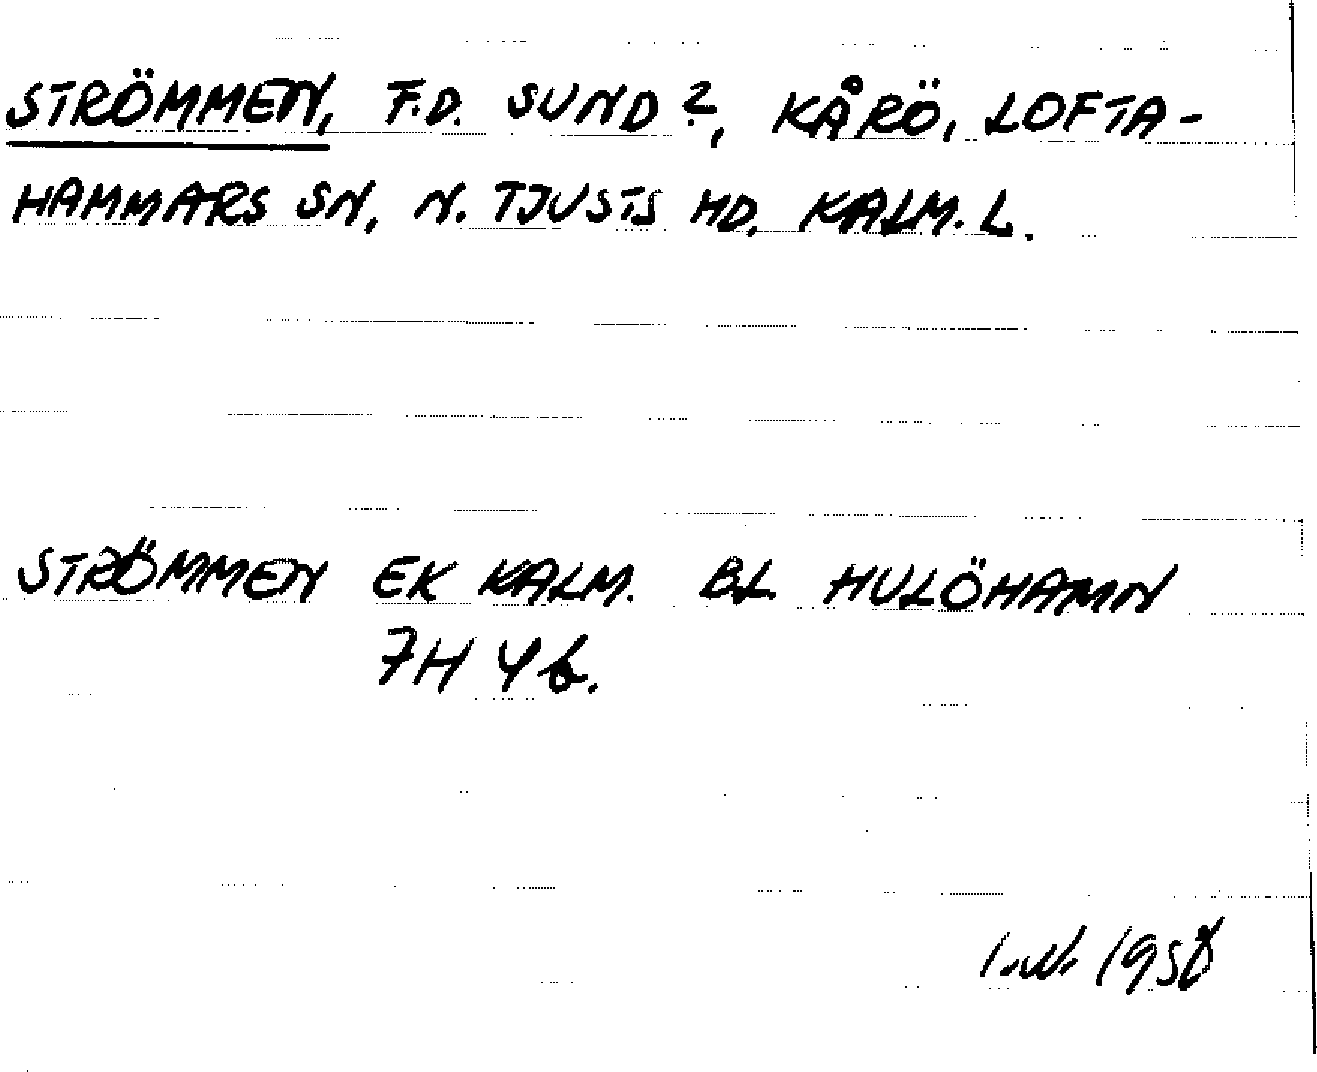 STRÖMMEN, F.D. SUND?, KÅRÖ, LOFTA-
HAMMARS SN, N. TJUSTS HD, KALM. L.
STRÖMMEN EK KALM. BL HULÖHAMN
7H 4b.
1958